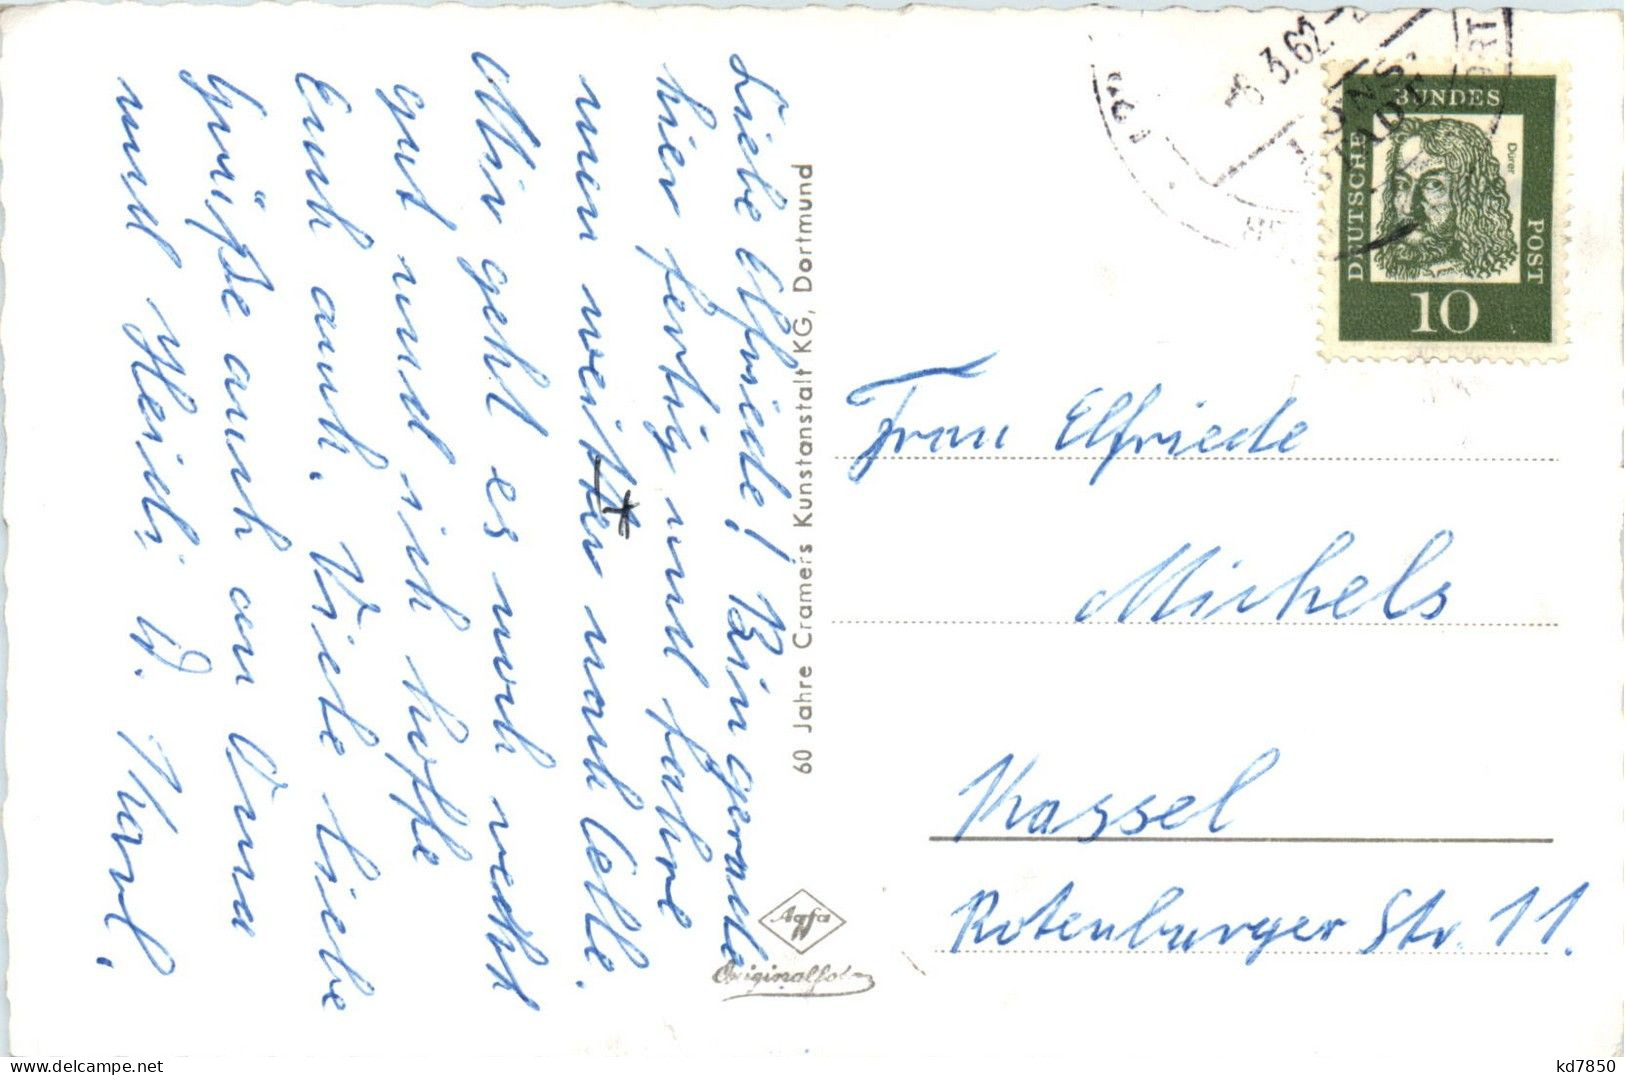 Liebe Elfriede! Bin gerade
hier fertig und fahre
nun weiter nach Celle.
Mir geht es noch recht
gut und ich hoffe
Euch auch. Viele liebe
Grüße auch an Oma
und Heidi. D. Karl.
60 Jahre Cramers Kunstanstalt KG, Dortmund
Agfa
Originalfoto
6.3.62
DEUTSCHE BUNDES POST
Dürer
10
Frau Elfriede
Michels
Kassel
Rotenburger Str. 11.
www.delcampe.net
kd7850